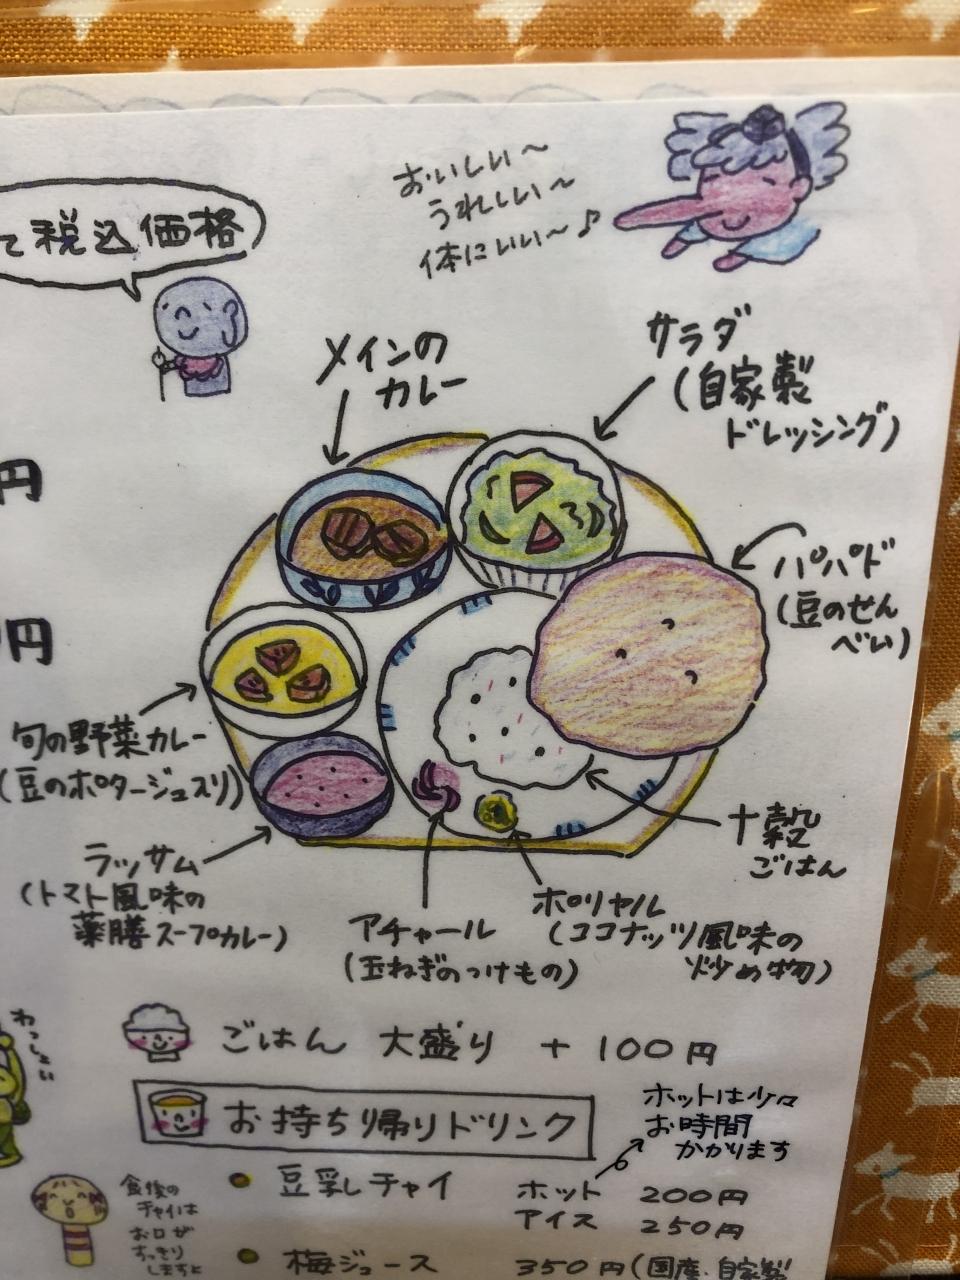 て税込価格
おいしい〜
うれしい〜
体にいい〜♪
メインの
カレー
サラダ
(自家製
ドレッシング)
円
パパド
(豆のせん
べい)
円
旬の野菜カレー
(豆のポタージュ入り)
ラッサム
(トマト風味の
薬膳スープカレー)
アチャール
(玉ねぎのつけもの)
ポリヤル
(ココナッツ風味の
炒め物)
十穀
ごはん
わっしょい
ごはん 大盛り + 100円
お持ち帰りドリンク
ホットは少々
お時間
かかります
● 豆乳チャイ ホット 200円
アイス 250円
食後の
チャイは
お口が
すっきり
しますよ
● 梅ジュース 350円(国産・自家製